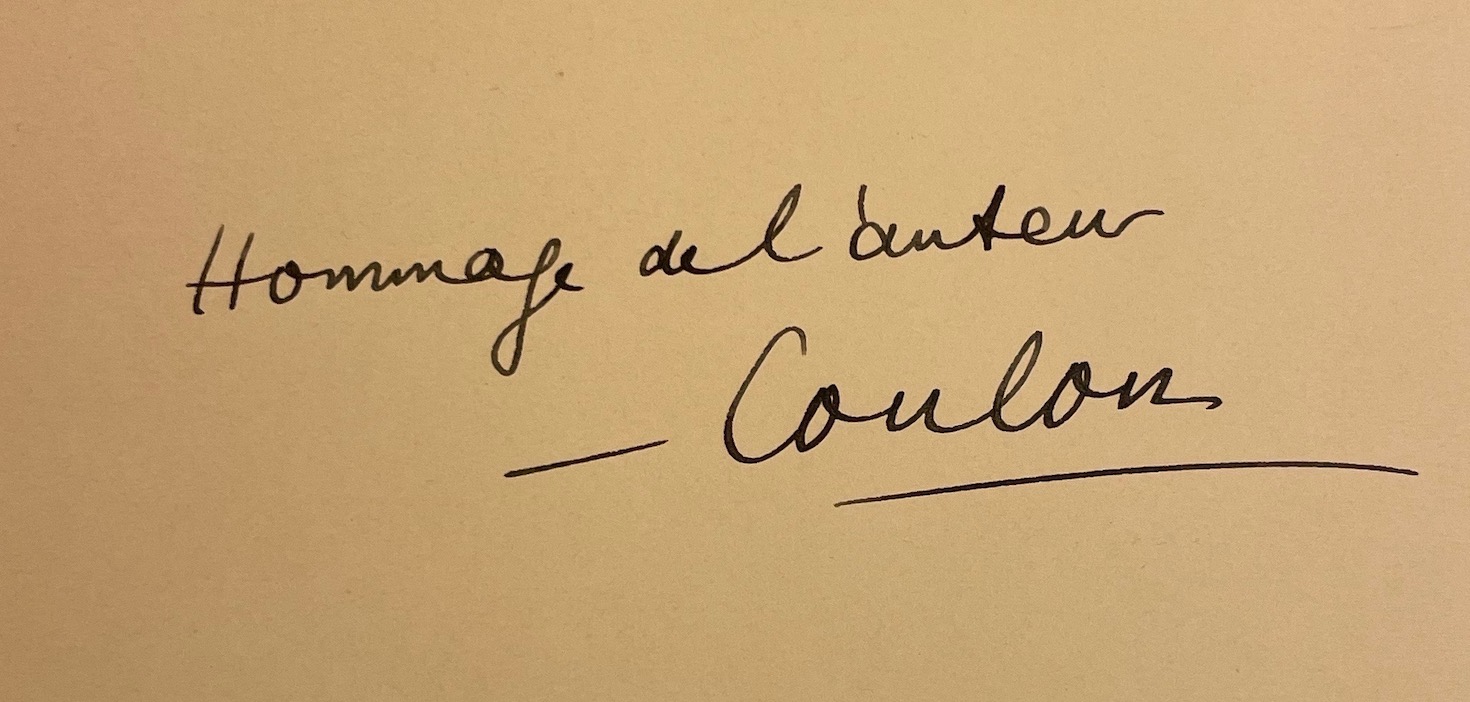 Hommage de l'auteur
— Coulon